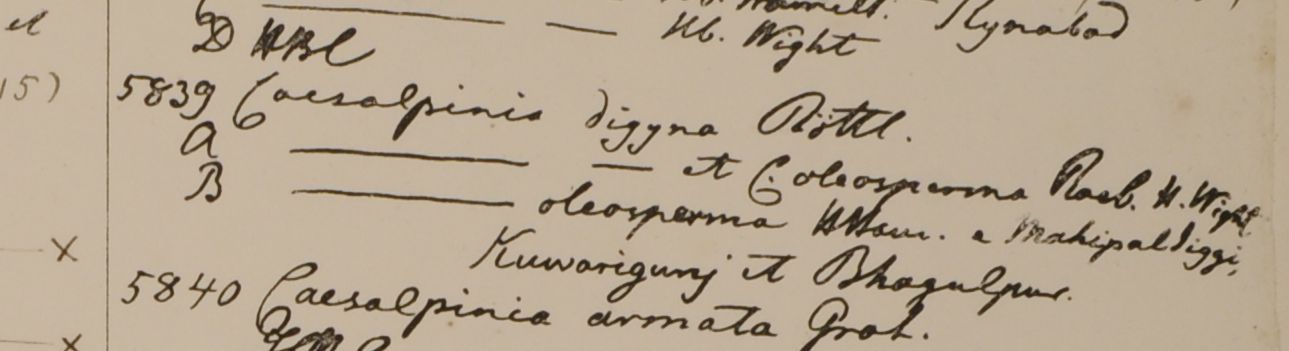 el
Hb. Wight
D HBC
15)
5839 Caesalpinia digyna Rottl.
A ——— — et C. oleosperma Roxb. H. Wight
B ——— oleosperma HHam. e Mahipaldiggi,
Kuwarigunj et Bhagulpur.
x
5840 Caesalpinia armata Grah.
x